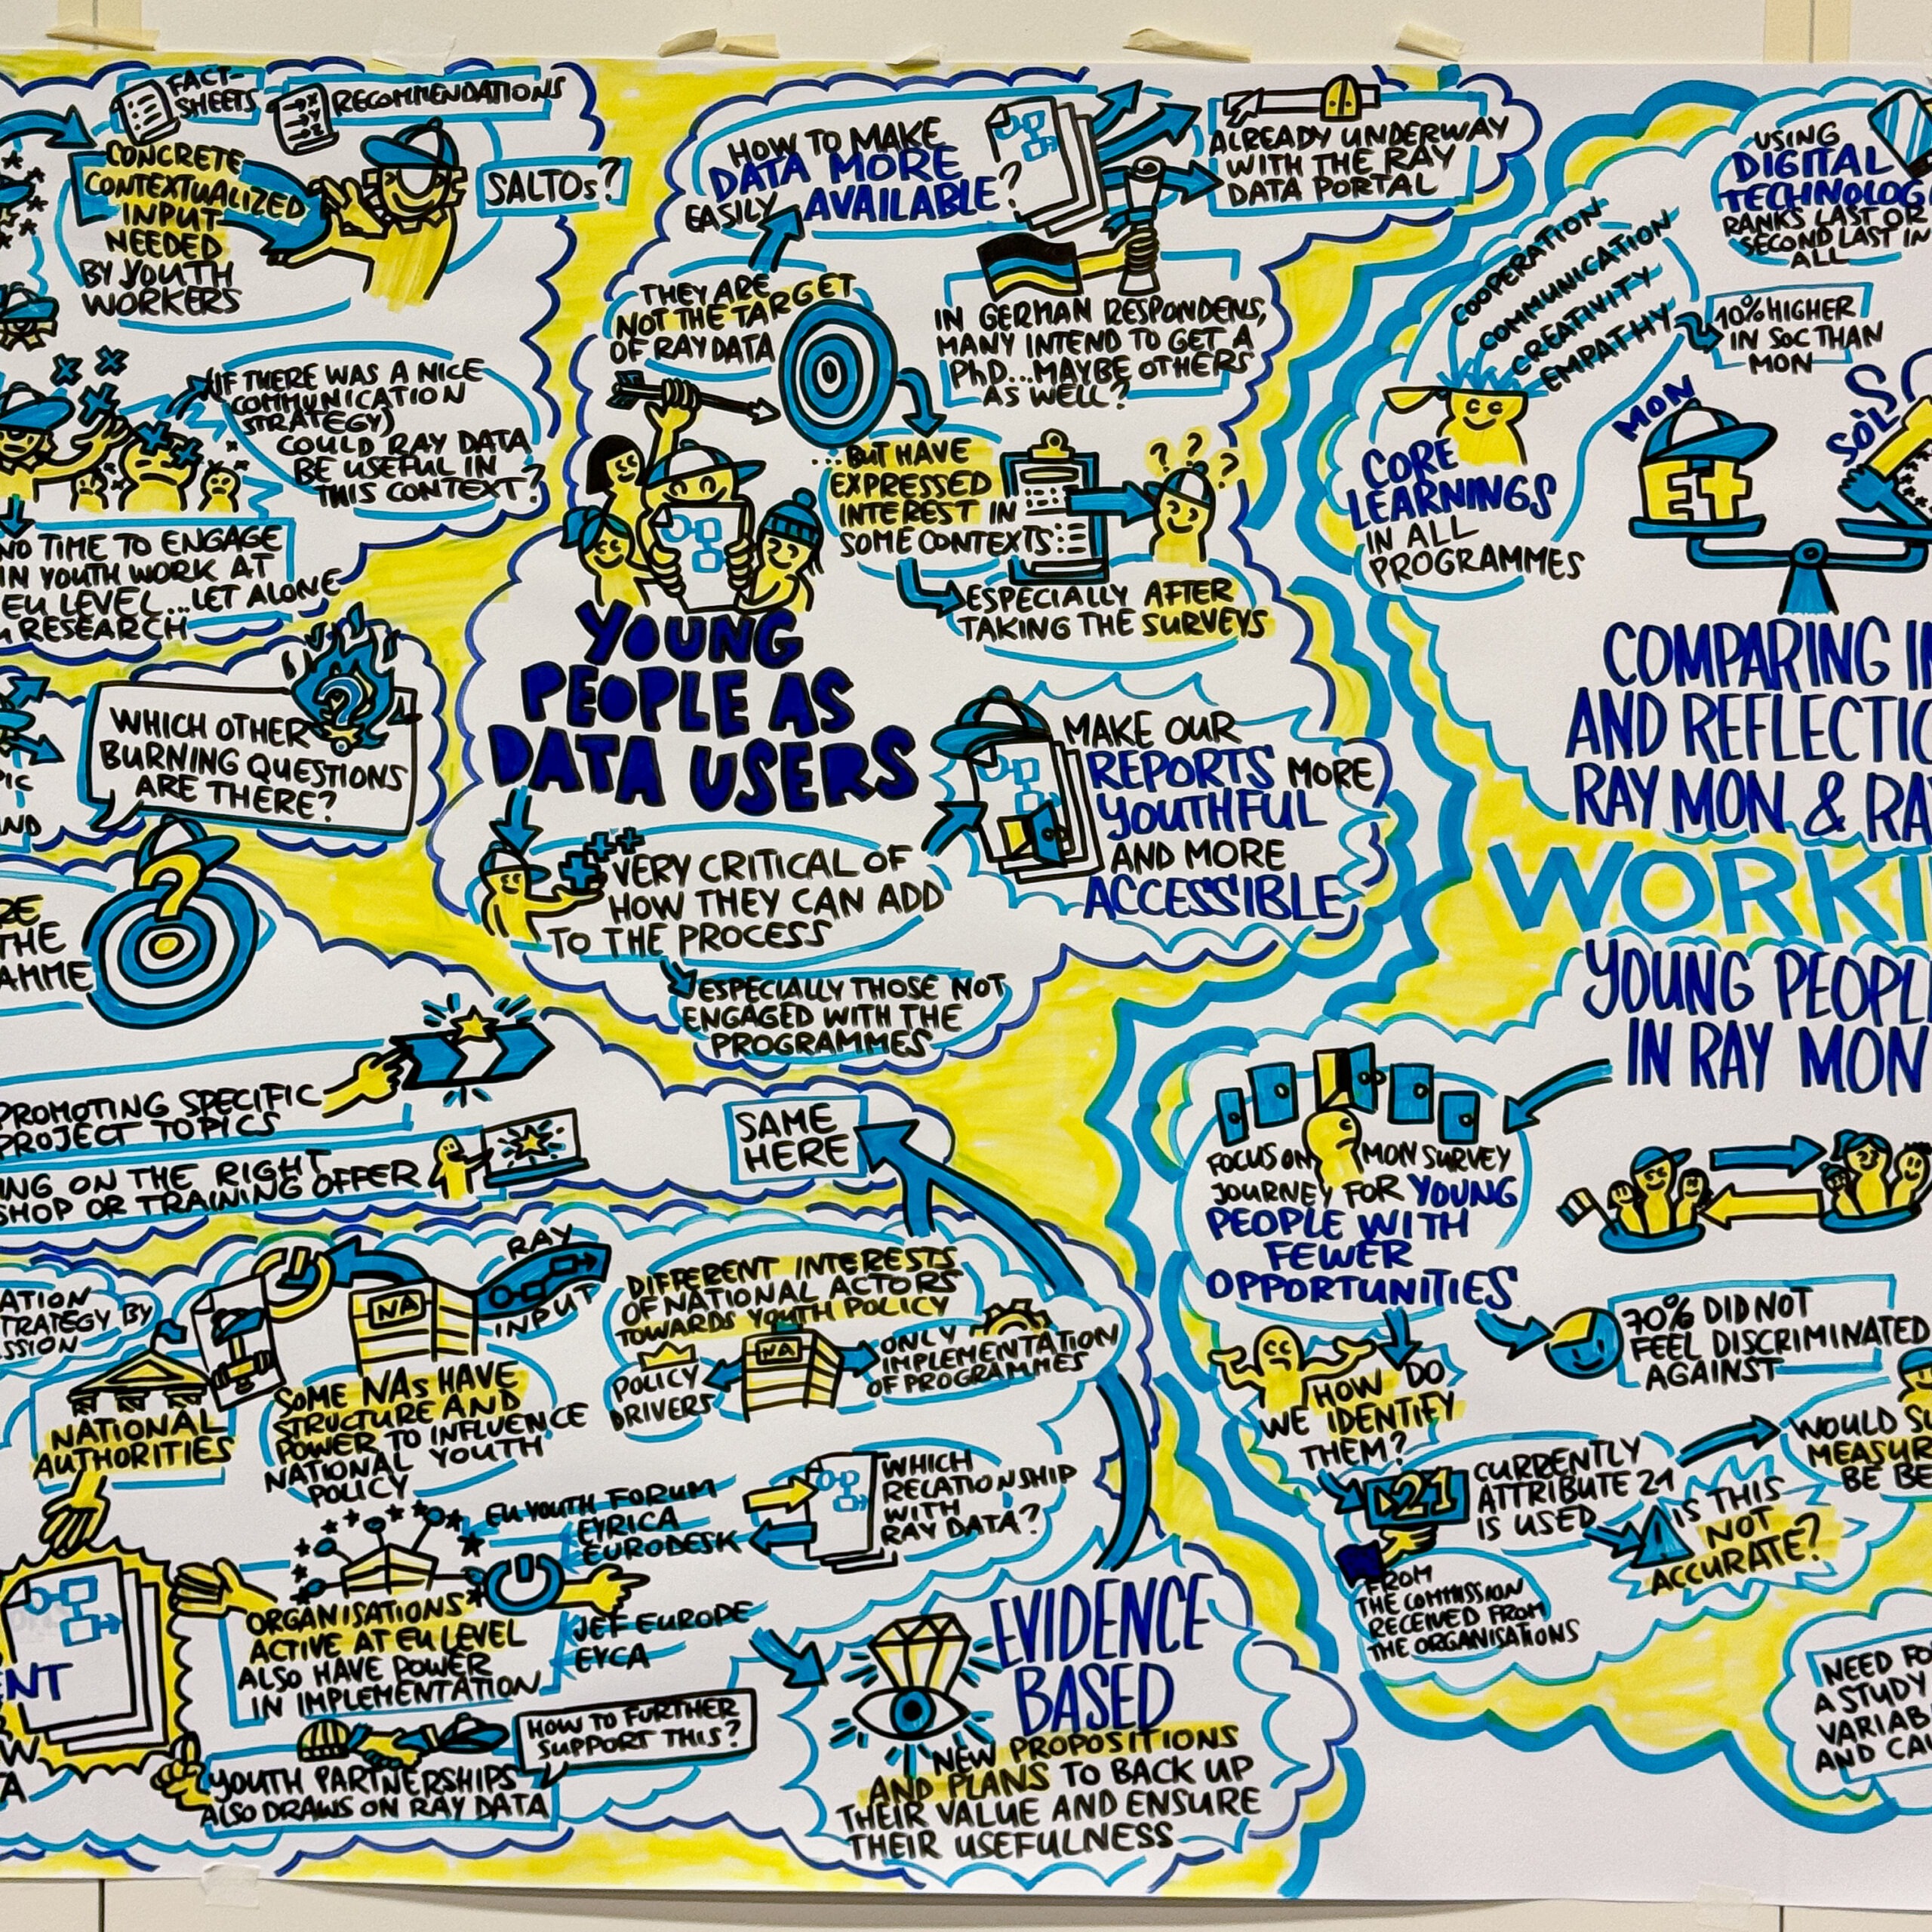 FACT-
SHEETS
RECOMMENDATIONS
CONCRETE
CONTEXTUALIZED
INPUT
NEEDED
BY YOUTH
WORKERS
SALTOs?
(IF THERE WAS A NICE
COMMUNICATION
STRATEGY)
COULD RAY DATA
BE USEFUL IN
THIS CONTEXT?
NO TIME TO ENGAGE
IN YOUTH WORK AT
EU LEVEL...LET ALONE
RESEARCH
WHICH OTHER
BURNING QUESTIONS
ARE THERE?
?
PIC
THE
AMME
PROMOTING SPECIFIC
PROJECT TOPICS
ING ON THE RIGHT
SHOP OR TRAINING OFFER
HOW TO MAKE
DATA MORE
EASILY AVAILABLE?
ALREADY UNDERWAY
WITH THE RAY
DATA PORTAL
THEY ARE
NOT THE TARGET
OF RAY DATA
IN GERMAN RESPONDENS,
MANY INTEND TO GET A
PhD...MAYBE OTHERS
AS WELL?
...BUT HAVE
EXPRESSED
INTEREST IN
SOME CONTEXTS
? ? ?
ESPECIALLY AFTER
TAKING THE SURVEYS
YOUNG
PEOPLE AS
DATA USERS
MAKE OUR
REPORTS MORE
YOUTHFUL
AND MORE
ACCESSIBLE
VERY CRITICAL OF
HOW THEY CAN ADD
TO THE PROCESS
ESPECIALLY THOSE NOT
ENGAGED WITH THE
PROGRAMMES
SAME
HERE
ATION
TRATEGY BY
SSION
NATIONAL
AUTHORITIES
NA
RAY
INPUT
SOME NAs HAVE
STRUCTURE AND
POWER TO INFLUENCE
NATIONAL YOUTH
POLICY
DIFFERENT INTERESTS
OF NATIONAL ACTORS
TOWARDS YOUTH POLICY
POLICY
DRIVERS
NA
ONLY
IMPLEMENTATION
OF PROGRAMMES
EU YOUTH FORUM
EYRICA
EURODESK
WHICH
RELATIONSHIP
WITH
RAY DATA?
ORGANISATIONS
ACTIVE AT EU LEVEL
ALSO HAVE POWER
IN IMPLEMENTATION
JEF EURODE
EYCA
ENT
HOW TO FURTHER
SUPPORT THIS?
YOUTH PARTNERSHIPS
ALSO DRAWS ON RAY DATA
EVIDENCE
BASED
NEW PROPOSITIONS
AND PLANS TO BACK UP
THEIR VALUE AND ENSURE
THEIR USEFULNESS
USING
DIGITAL
TECHNOLOG
RANKS LAST OR
SECOND LAST IN
ALL
COOPERATION
COMMUNICATION
CREATIVITY
EMPATHY
10% HIGHER
IN SOC THAN
MON
CORE
LEARNINGS
IN ALL
PROGRAMMES
MON
E+
COMPARING IN
AND REFLECTIO
RAY MON & RA
WORKI
YOUNG PEOPL
IN RAY MON
FOCUS ON MON SURVEY
JOURNEY FOR YOUNG
PEOPLE WITH
FEWER
OPPORTUNITIES
70% DID NOT
FEEL DISCRIMINATED
AGAINST
HOW DO
WE IDENTIFY
THEM?
21
CURRENTLY
ATTRIBUTE 21
IS USED
FROM
THE COMMISSION
RECEIVED FROM
THE ORGANISATIONS
IS THIS
NOT
ACCURATE?
WOULD SU
MEASUR
BE BE
NEED FO
A STUDY
VARIAB
AND CAU